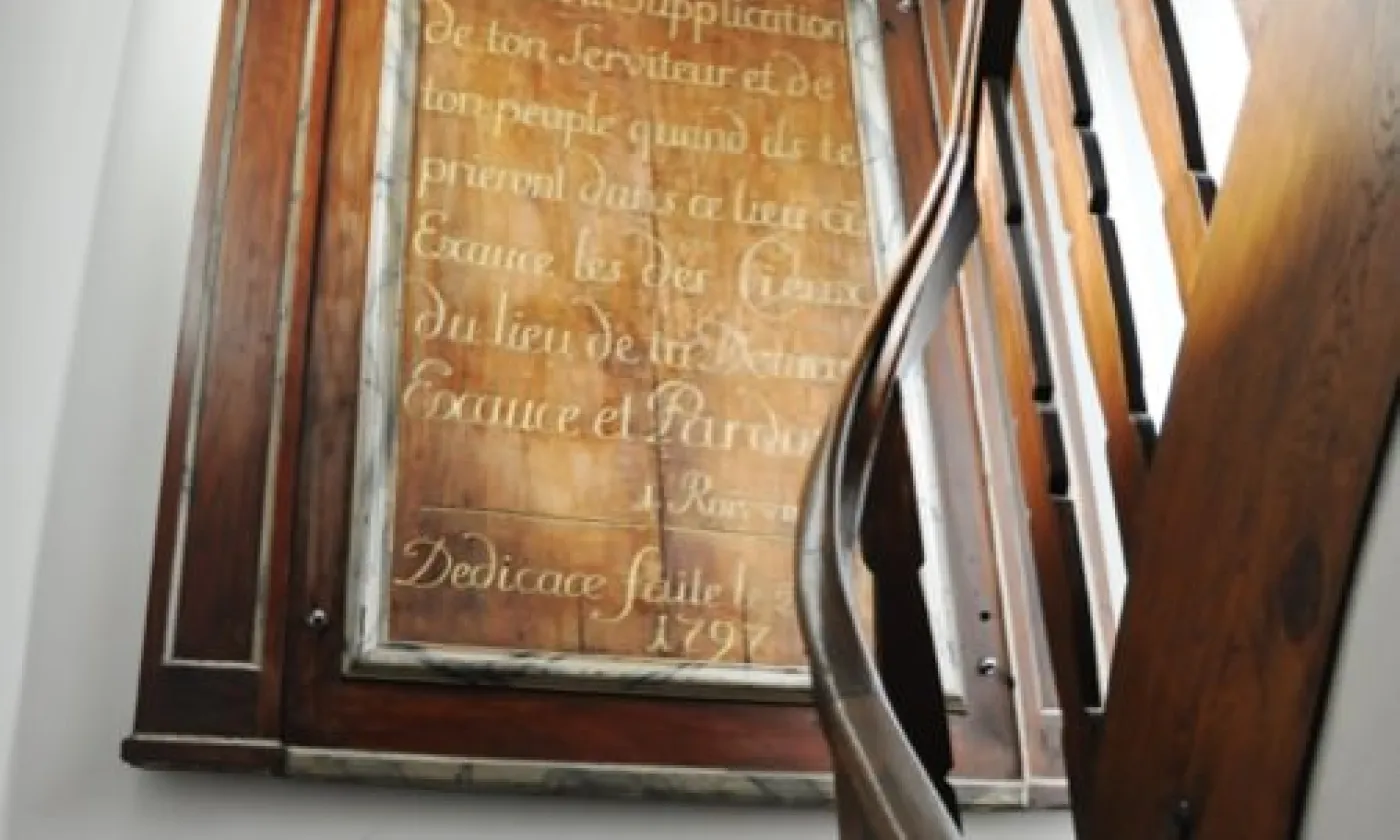 Supplication
de ton Serviteur et de
ton peuple quand ils te
prieront dans ce lieu ci
Exauce les des Cieux
du lieu de ta
Exauce et
Dedicace faite le
1797